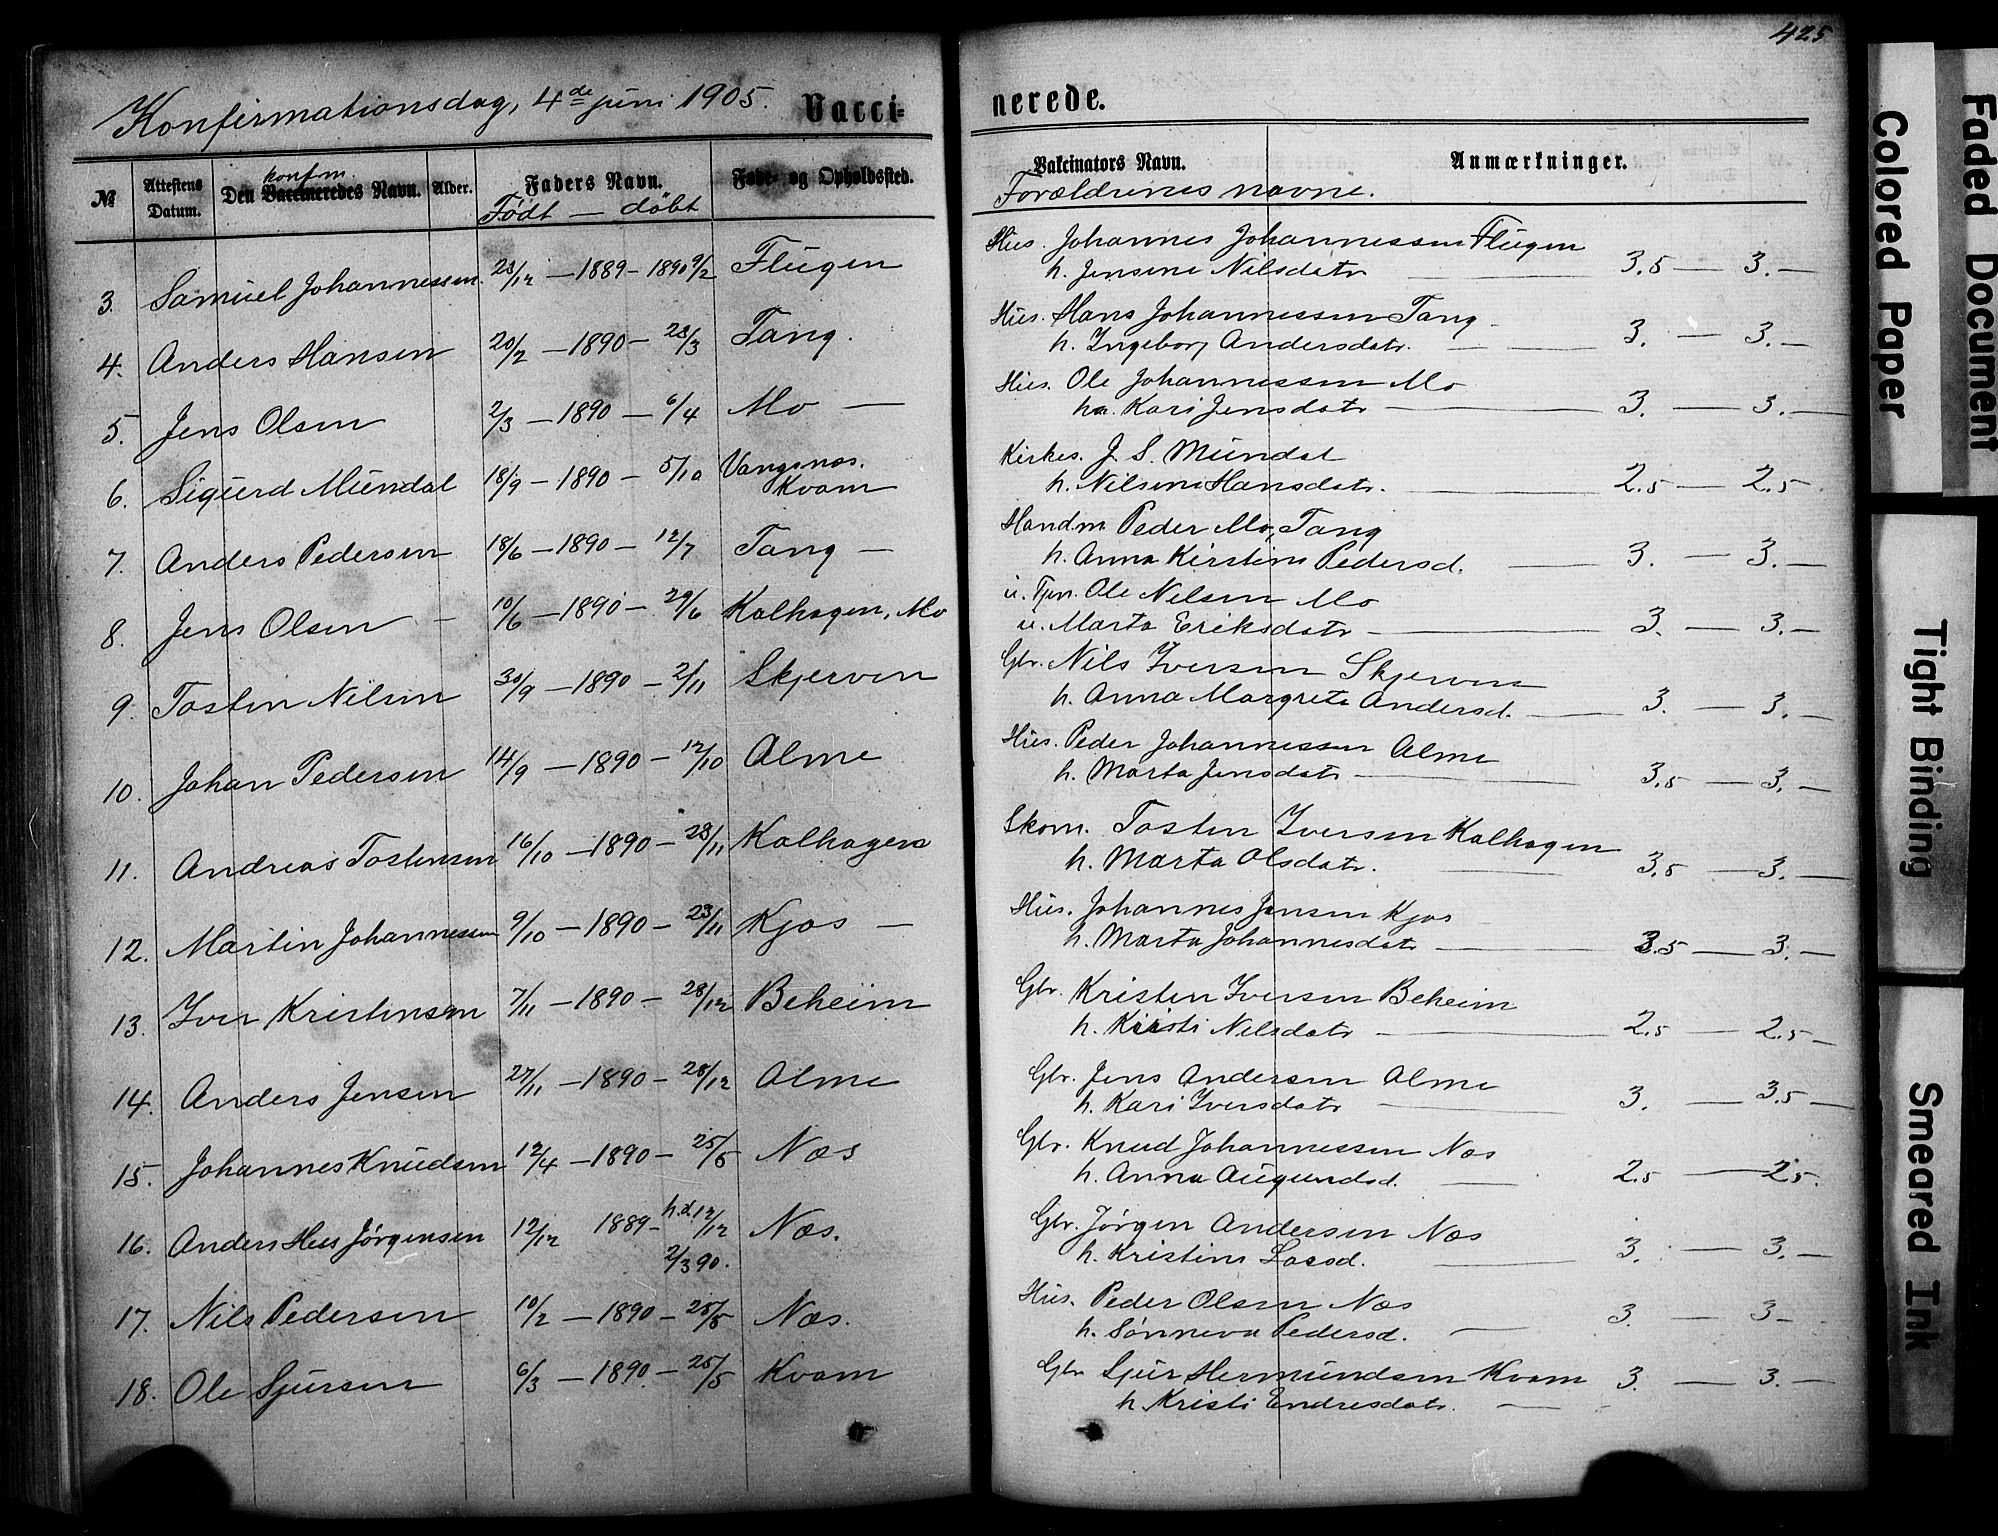 425
Konfirmationsdag, 4de juni 1905. Vacci-
nerede.
№ Attestens Datum. Den Vaccineredes Navn. Alder. Faders Navn. Føde- og Opholdssted.
konfm. Født — döbt
Vakcinators Navn. Anmærkninger.
Forældrenes navne.
3. Samuel Johannessen. 23/12 — 1889 – 1890 9/2 Flugen
Hus. Johannes Johannessen Flugen
h. Jensine Nilsdatr — 3.5 — 3. —
4. Anders Hansen 20/2 — 1890 — 23/3 Tang.
Hus. Hans Johannessen Tang
h. Ingeborg Andersdatr. — 3. — 3. —
5. Jens Olsen 2/3 — 1890 — 6/4 Mo —
Hus. Ole Johannessen Mo
ha. Kari Jensdatr — 3. — 3. —
6. Sigurd Mundal 18/9 — 1890 — 5/10 Vangsnæs. Kvam
Kirkes. J. S. Mundal
h. Nilsine Hansdatr. — 2.5 — 2.5
7. Anders Pedersen 18/6 — 1890 — 12/7 Tang —
Handm. Peder Mo, Tang
h. Anna Kirstine Pedersd. — 3. — 3. —
8. Jens Olsen — 10/6 — 1890 — 29/6 Kalhagen, Mo
u. Tjen. Ole Nilsen Mo
u. Marta Eriksdatr — 3. — 3. —
9. Tosten Nilsen 30/9 — 1890 — 2/11 Skjerven
Gbr. Nils Iversen Skjerven
h. Anna Margreta Andersd. — 3. — 3. —
10. Johan Pedersen 14/9 — 1890 — 12/10 Alme
Hus. Peder Johannessen Alme
h. Marta Jensdatr — 3.5 — 3. —
11. Andreas Tostensen 16/10 — 1890 — 23/11 Kalhagen
Skom. Tosten Iversen Kalhagen
h. Marta Olsdatr. — 3.5 — 3. —
12. Martin Johannessen 9/10 — 1890 — 23/11 Kjøs —
Hus. Johannes Jensen Kjøs
h. Marta Johannesdatr — 3.5 — 3. —
13. Iver Kristensen 7/11 — 1890 — 28/12 Beheim
Gbr. Kristen Iversen Beheim
h. Kristi Nilsdatr — 2.5 — 2.5 —
14. Anders Jensen 27/11 — 1890 — 28/12 Alme
Gbr. Jens Andersen Alme
h. Kari Iversdatr — 3. — 3.5 —
15. Johannes Knudsen 12/4 — 1890 — 25/5 Næs
Gbr. Knud Johannessen Næs
h. Anna Augundsd. — 2.5 — 2.5.
16. Anders Hus Jørgensen 12/12 1889 — h.d. 12/12 Næs.
2/3 90.
Gbr. Jørgen Andersen Næs
h. Kristine Lassd. — 3. — 3. —
17. Nils Pedersen 10/2 — 1890 — 25/5 Næs.
Hus. Peder Olsen Næs
h. Sønneva Pedersd. — 3. — 3 —
18. Ole Sjursen 6/3 — 1890 — 25/5 Kvam
Gbr Sjur Hermundsen Kvam
h Kristi Endresdatr. — 3. — 3. —
Faded Document
Colored Paper
Tight Binding
Smeared Ink